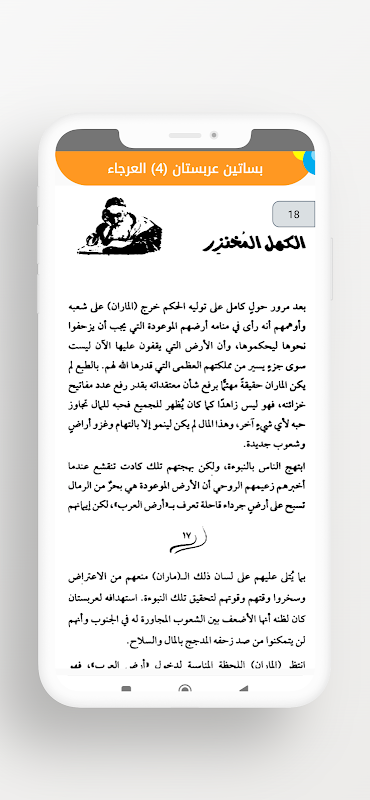 بساتين عربستان (4) العرجاء
18
الكهل المُختنِر
بعد مرور حولٍ كامل على توليه الحكم خرج (الماران) على شعبه
وأوهمهم أنه رأى في منامه أرضهم الموعودة التي يجب أن يزحفوا
نحوها ليحكموها، وأن الأرض التي يقفون عليها الآن ليست
سوى جزءٍ يسير من مملكتهم العظمى التي قدرها الله لهم. بالطبع لم
يكن الماران حقيقةً مهتمًّا برفع شأن معتقداته بقدر رفع عدد مفاتيح
خزائنه، فهو ليس زاهدًا كما كان يُظهر للجميع فحبه للمال تجاوز
حبه لأي شيءٍ آخر، وهذا المال لم يكن لينمو إلا بالتهام وغزو أراضٍ
وشعوب جديدة.
ابتهج الناس بالنبوءة، ولكن بهجتهم تلك كادت تنقشع عندما
أخبرهم زعيمهم الروحي أن الأرض الموعودة هي بحرٌ من الرمال
تسبح على أرضٍ جرداء قاحلة تعرف بـ«أرض العرب»، لكن إيمانهم
١٧
بما يُتلى عليهم على لسان ذلك الـ(ماران) منعهم من الاعتراض
وسخروا وقتهم وقوتهم لتحقيق تلك النبوءة. استهدافه لعربستان
كان لظنه أنها الأضعف بين الشعوب المجاورة له في الجنوب وأنهم
لن يتمكنوا من صد زحفه المدجج بالمال والسلاح.
انتظر (الماران) اللحظة المناسبة لدخول «أرض العرب»، فهو